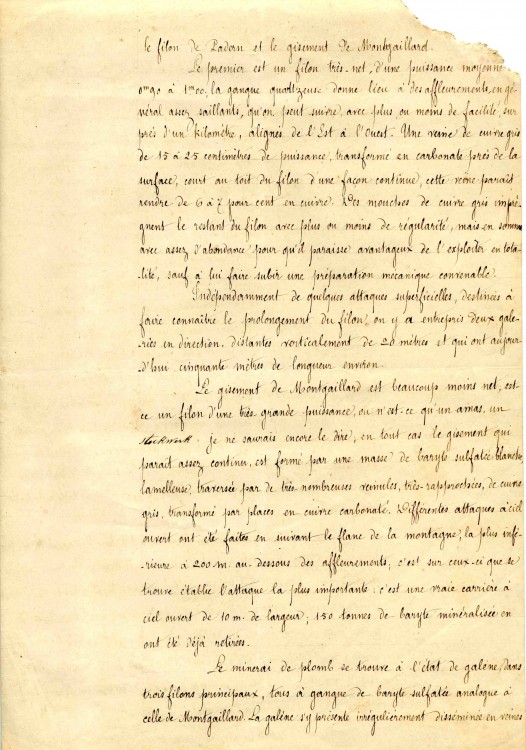 le filon de Padern et le gisement de Montgaillard.
Le premier est un filon très-net, d'une puissance moyenne
0m90 à 1m00, la gangue quartzeuse donne lieu à des affleurements, en gé-
néral assez saillants, qu'on peut suivre, avec plus ou moins de facilité, sur
près d'un kilomètre, alignés de l'Est à l'Ouest. Une veine de cuivre gris
de 15 à 25 centimètres de puissance, transformé en carbonate près de la
surface, court au toit du filon d'une façon continue, cette veine paraît
rendre de 6 à 7 pour cent en cuivre. Des mouches de cuivre gris impré-
gnent le restant du filon avec plus ou moins de régularité, mais en somme
avec assez d'abondance pour qu'il paraisse avantageux de l'exploiter en tota-
lité, sauf à lui faire subir une préparation mécanique convenable.
Indépendamment de quelques attaques superficielles, destinées à
faire connaître le prolongement du filon, on y a entrepris deux gale-
ries en direction, distantes verticalement de 20 mètres et qui ont aujour-
d'hui cinquante mètres de longueur environ.
Le gisement de Montgaillard est beaucoup moins net, est-
ce un filon d'une très grande puissance, ou n'est-ce qu'un amas, un
stockwerk. je ne saurais encore le dire, en tout cas le gisement qui
paraît assez continu, est formé par une masse de baryte sulfatée blanche
lamelleuse, traversée par de très-nombreuses veinules, très-rapprochées, de cuivre
gris, transformé par places en cuivre carbonaté. Différentes attaques à ciel
ouvert ont été faites en suivant le flanc de la montagne, la plus infé-
rieure à 200 m. au-dessous des affleurements; c'est sur ceux-ci que se
trouve établie l'attaque la plus importante: c'est une vraie carrière à
ciel ouvert de 10 m. de largeur; 150 tonnes de baryte minéralisée en
ont été déjà retirées.
Le minerai de plomb se trouve à l'état de galène, dans
trois filons principaux, tous à gangue de baryte sulfatée analogue à
celle de Montgaillard. La galène s'y présente irrégulièrement disséminée en veines